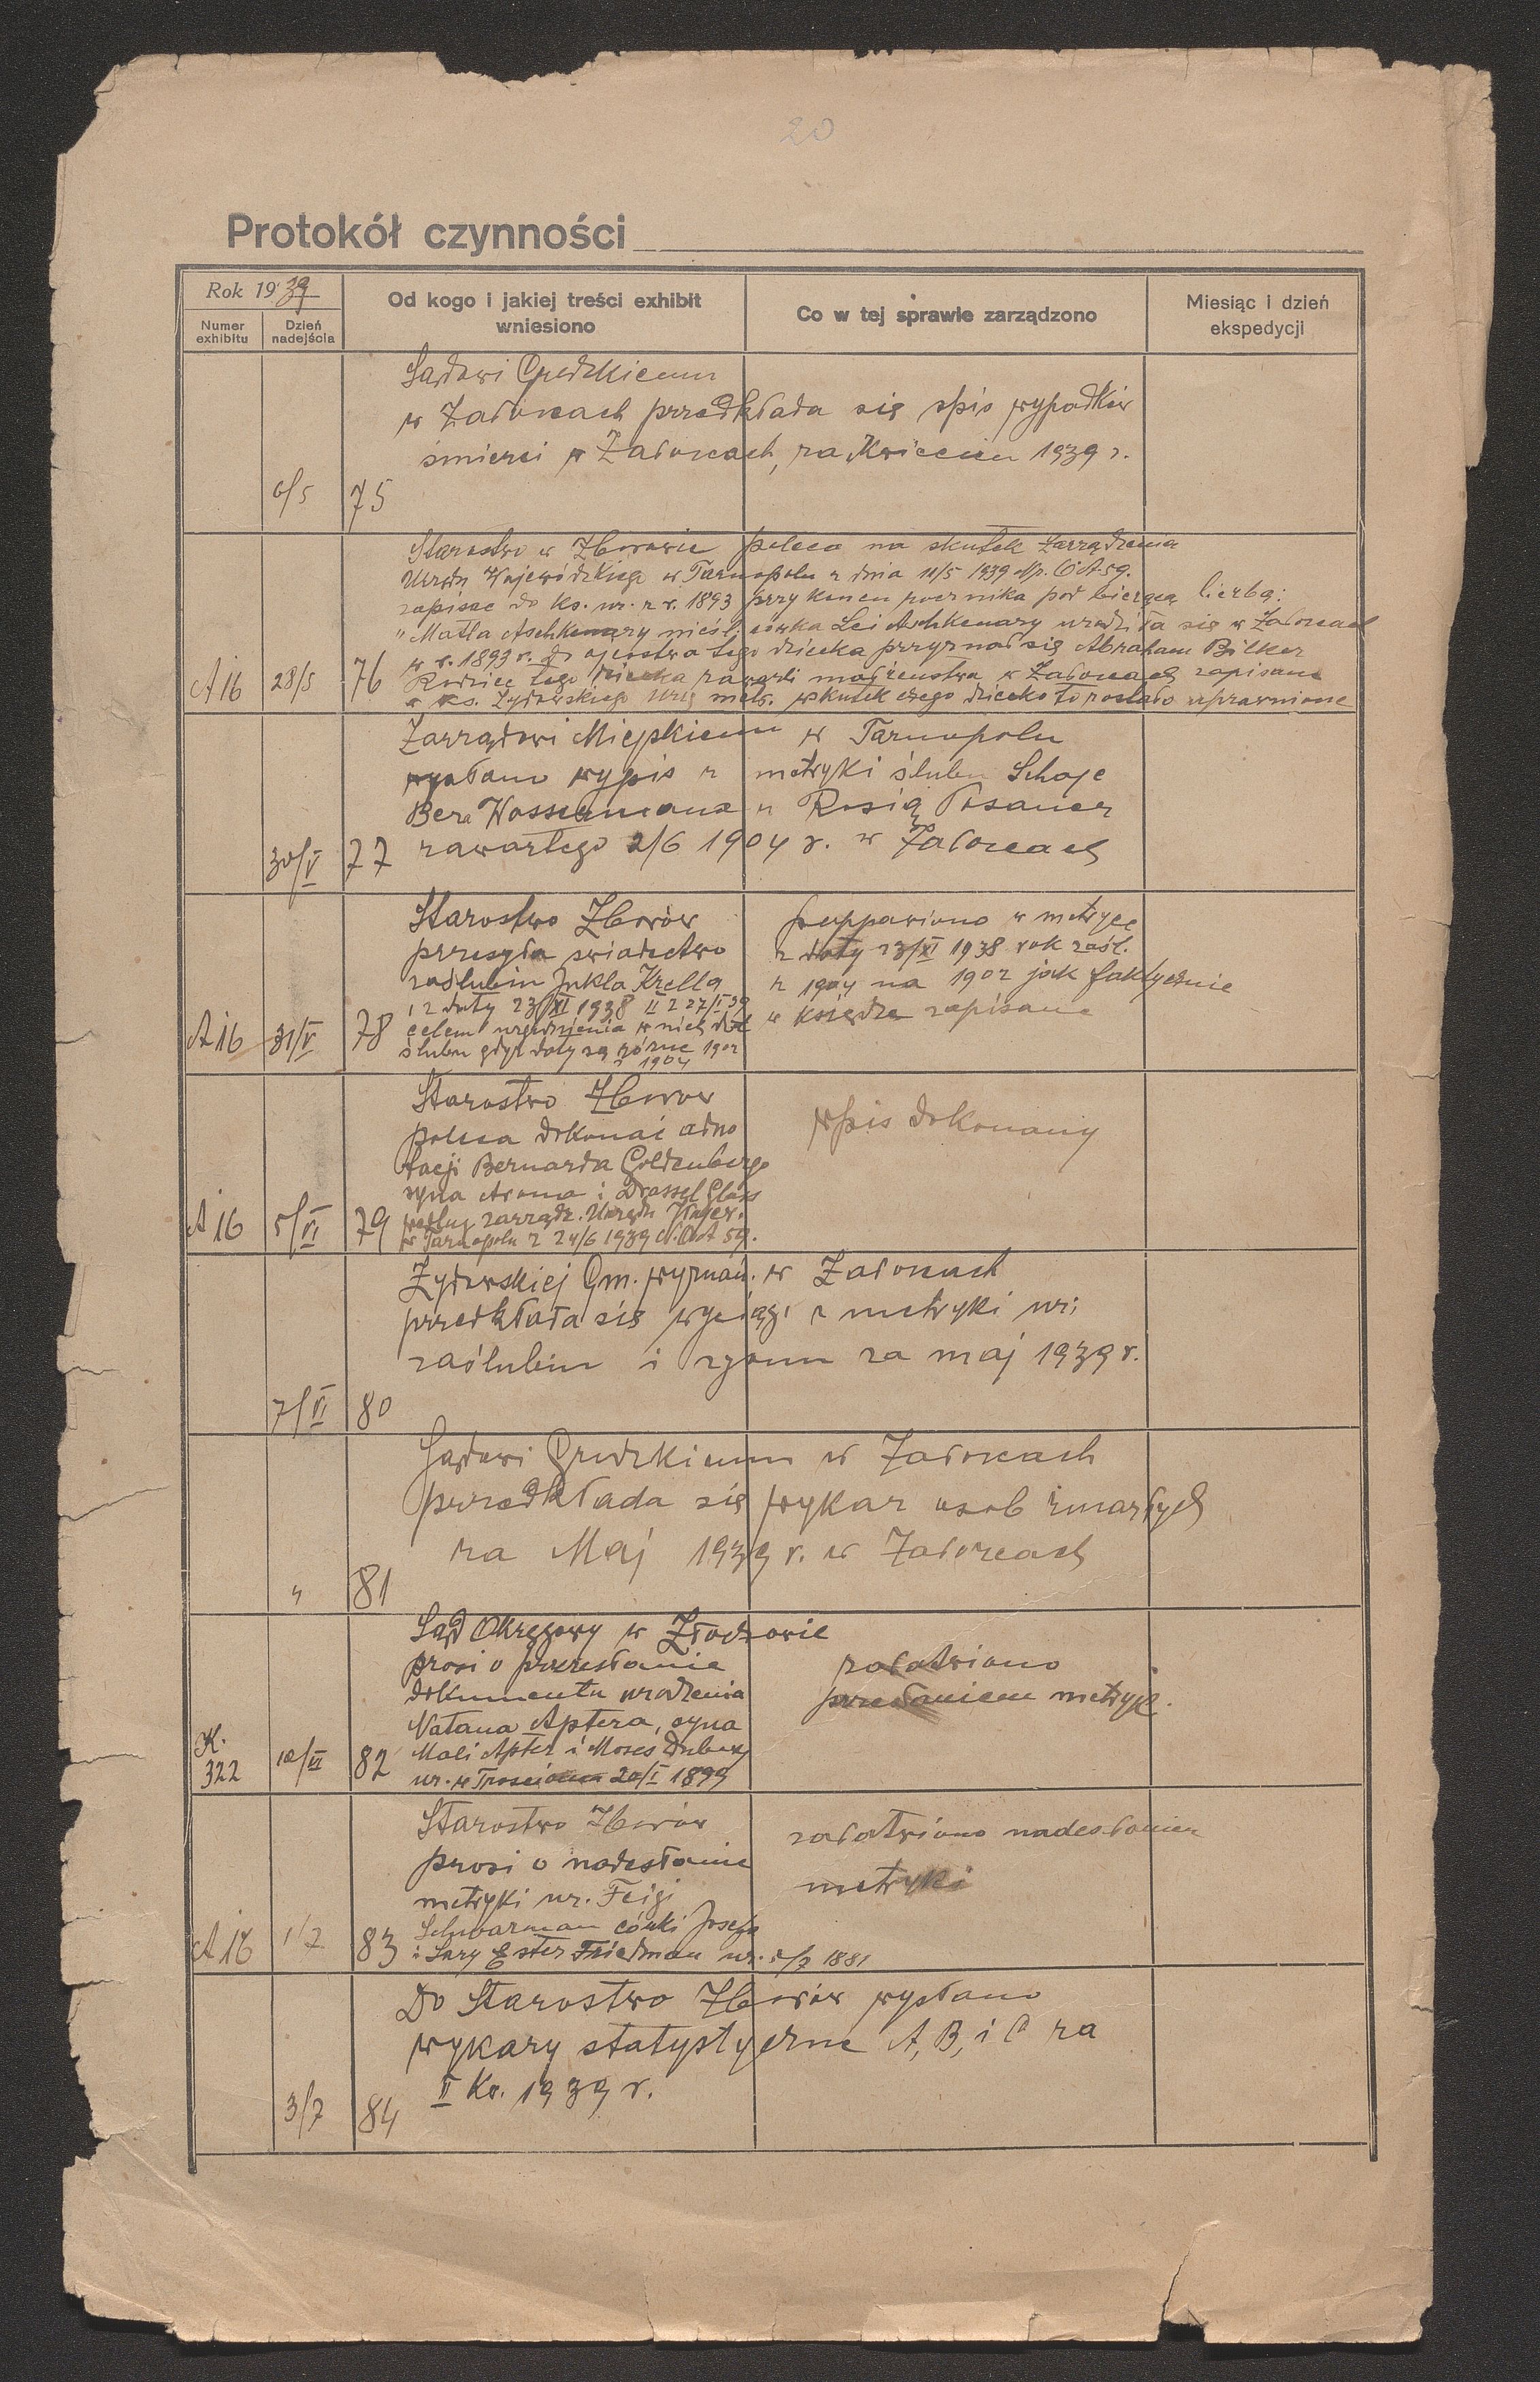 20
Protokół czynności
Rok 1939
Numer exhibitu
Dzień nadejścia
Od kogo i jakiej treści exhibit wniesiono
Co w tej sprawie zarządzono
Miesiąc i dzień ekspedycji
Sądowi Grodzkiemu
w Załoscach przedkłada się spis wypadków
śmierci w Załoscach, za Kwiecień 1939 r.
6/5 75
Starostwo w Zborowie poleca na skutek zarządzenia
Urzędu Wojewódzkiego w Tarnopolu z dnia 11/5 1939
zapisać do ks. ur. z r. 1893 przy końcu rocznika pod bieżącą liczbą:
"Matla Aschkenazy nieśl. córka Lei Aschkenazy urodziła się w Załoscach
w r. 1893 r. do ojcostwa tego dziecka przyznał się Abraham Bilker
Rodzice tego dziecka zawarli małżeństwo w Załoscach zapisane
w ks. Żydowskiego Urzę metr. wskutek czego dziecko to zostało uprawnione
A 16 28/5 76
Zarządowi Miejskiemu w Tarnopolu
wysłano wypis z metryki ślubu Schoje
Bera Wassermana z Rosią
zawartego 2/6 1904 r. w Załoscach
30/V 77
Starostwo Zborów
przesyła swiadectwo
zaślubin Jukla Krella
1 z daty 23/XI 1938 II z 27/I 39
celem uzgodnienia w nich dat
ślubu gdyż daty są różne 1902
z 1904
A 16 31/V 78
poprawiono w metryce
z daty 23/XI 1938 rok zaśl.
z 1904 na 1902 jak faktycznie
w księdze zapisane
Starostwo Zborow
poleca dokonać adno
tacji Bernarda Goldenberga
syna Arona i Drassel Glass
według zarządz. Urzędu Wojew.
w Tarnopolu z 24/6 1939
A 16 5/VI 79
wpis dokonany
Żydowskiej Gm. wyznań. w Załoscach
przedkłada się wyciągi z metryki ur;
zaślubin i zgonu za maj 1939 r.
7/VI 80
Sądowi Grodzkiemu w Załoscach
przedkłada się wykaz osob zmarłych
za Maj 1939 r. w Załoscach
" 81
Sąd Okręgowy w Złoczowie
prosi o przesłanie
dokumentu urodzenia
Natana Aptera, syna
Mali Apter i Moses
ur. w 20/I 1899
K. 322 82
załatwiono
przesłaniem metryk.
Starostwo Zborów
prosi o nadesłanie
metryki ur. Feigi
Schwarzman córki Josefa
i Sary Ester Friedman ur. 1881
A 16 1/7 83
załatwiono nadesłaniem
metryki
Do Starostwo Zborów wysłano
wykazy statystyczne A, B, i C za
II Kw. 1939 r.
3/7 84